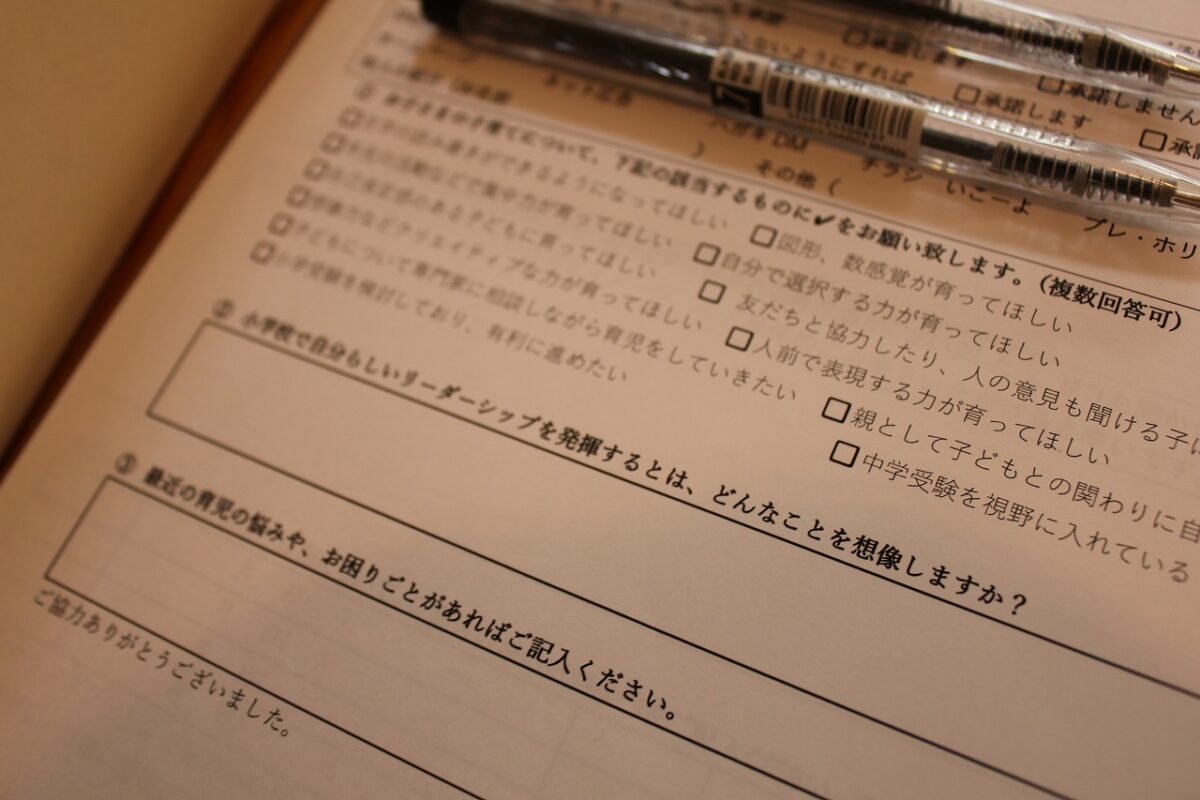 承諾します
ないようにすれば □承諾します □承諾しません
ネット広告 ハガキDM チラシ いこーよ プレ・ホリ
) その他 (
① お子さまの子育てについて、下記の該当するものに✔をお願い致します。(複数回答可)
□文字の読み書きができるようになってほしい □図形、数感覚が育ってほしい
集中力が育ってほしい □自分で選択する力が育ってほしい
□自己肯定感のある子どもに育ってほしい □友だちと協力したり、人の意見も聞ける子に
□想像力などクリエイティブな力が育ってほしい □人前で表現する力が育ってほしい
□子どもについて専門家に相談しながら育児をしていきたい □親として子どもとの関わりに自
□小学受験を検討しており、有利に進めたい □中学受験を視野に入れている
② 小学校で自分らしいリーダーシップを発揮するとは、どんなことを想像しますか？
③ 最近の育児の悩みや、お困りごとがあればご記入ください。
ご協力ありがとうございました。